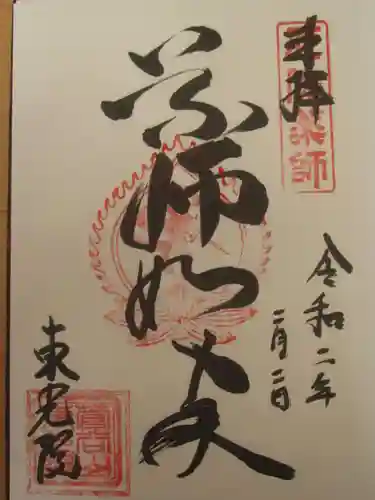 奉拝
薬師如来
令和二年
二月二日
東光院